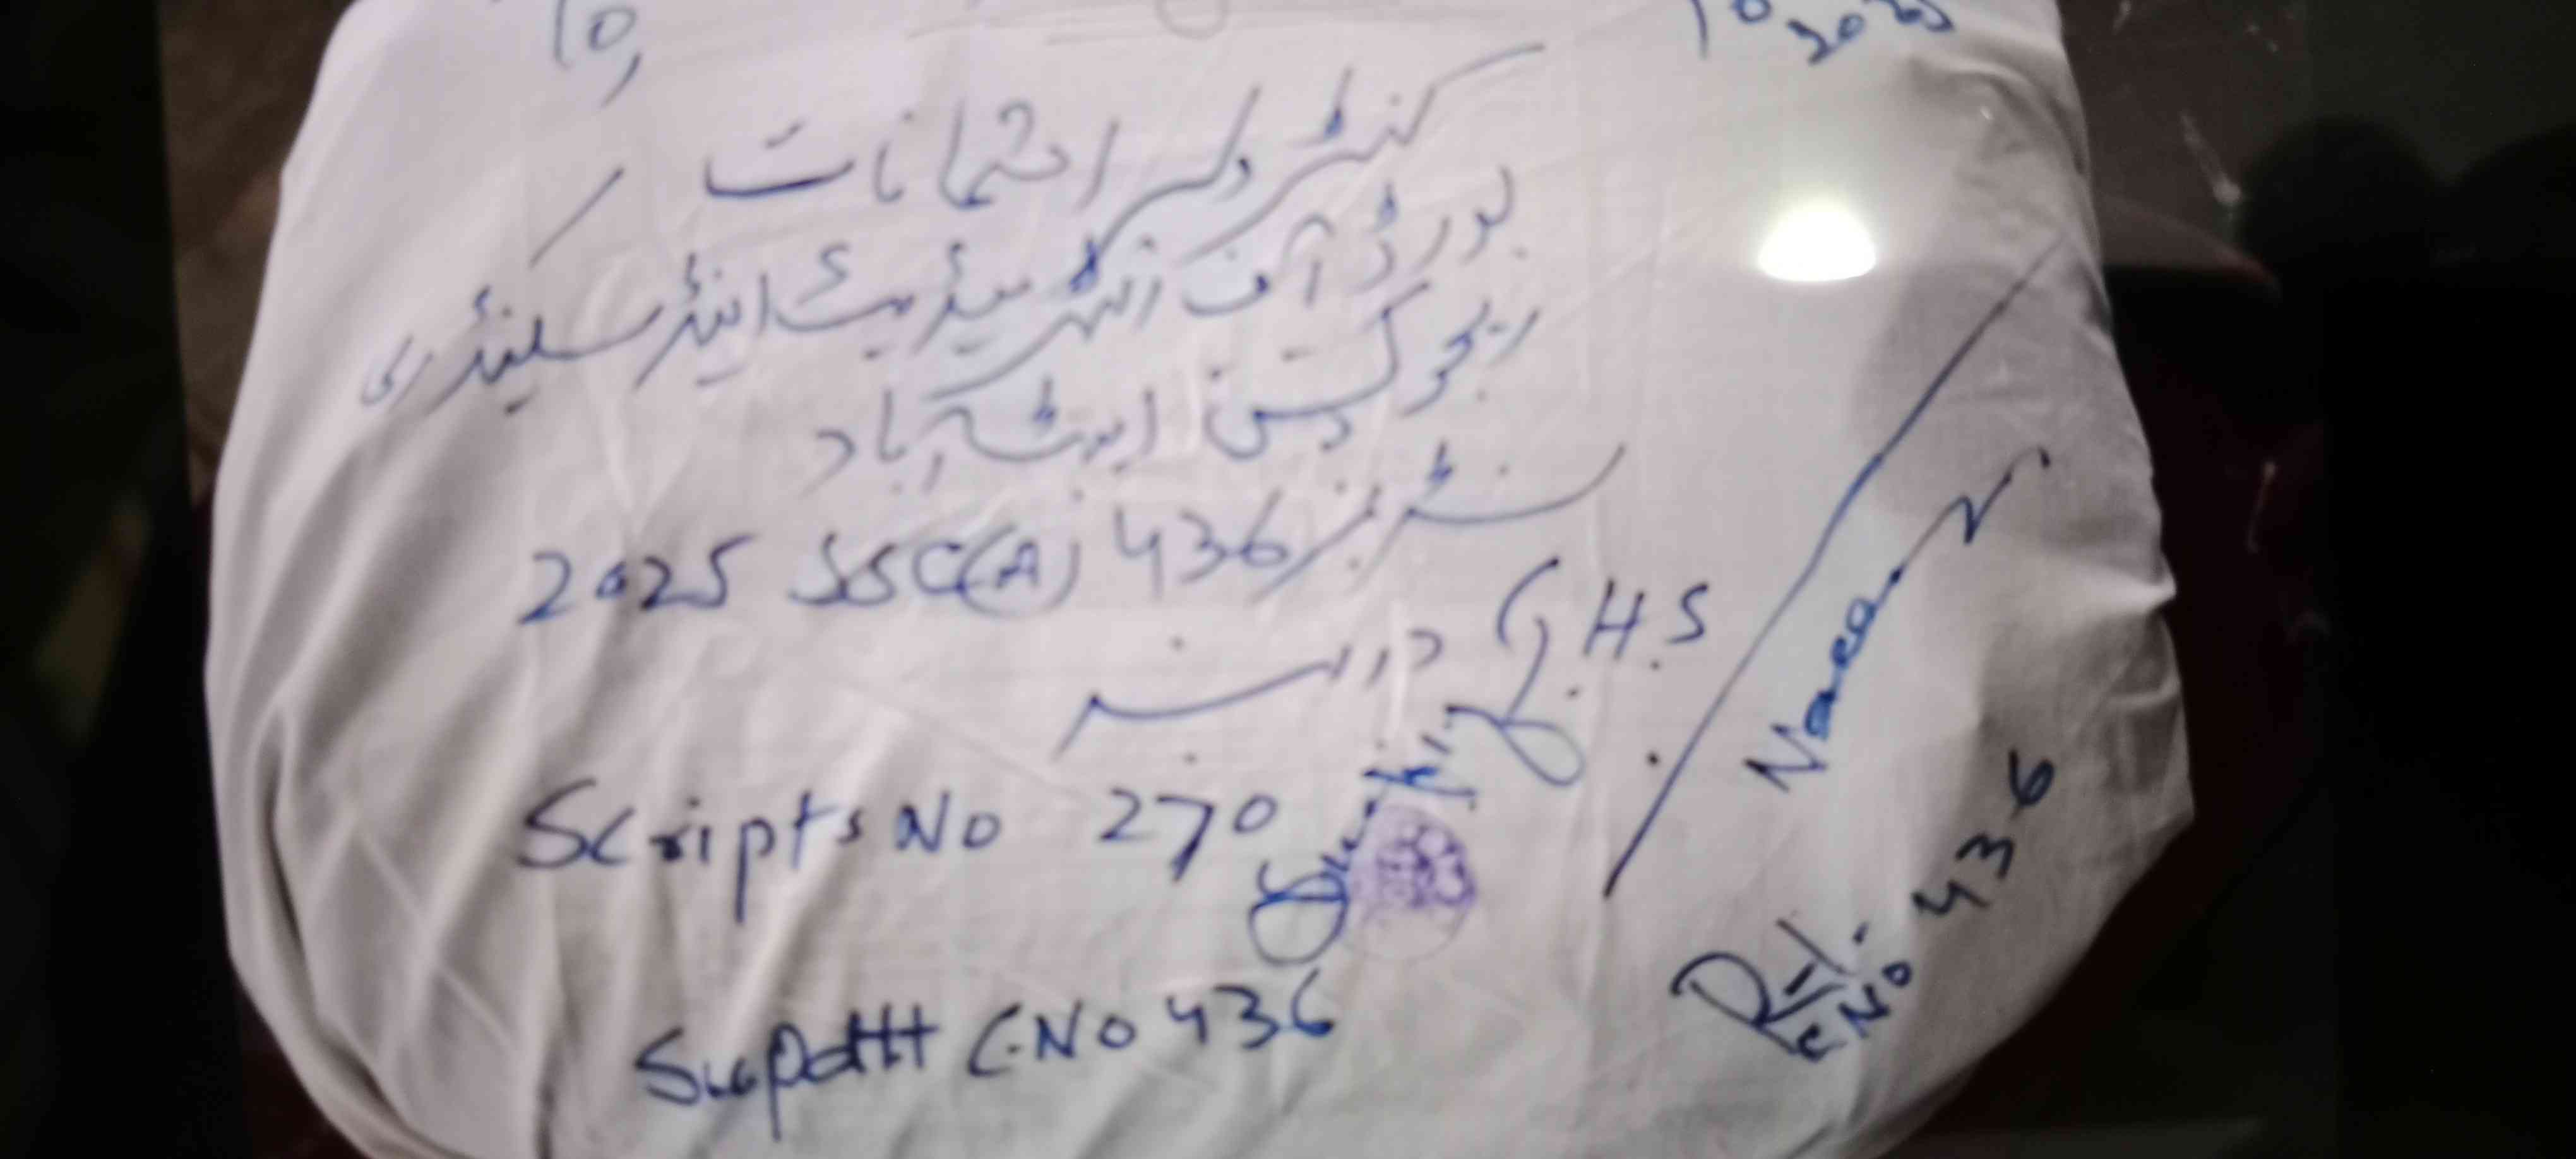 10,
10 2025
کنٹرولر امتحانات
بورڈ آف انٹرمیڈیٹ اینڈ سیکنڈری
ایجوکیشن ایبٹ آباد
سنٹر نمبر 436 SSC(A) 2025
G.H.S
Scripts No 270
Supdtt C.No 436
Naeem
C No 436